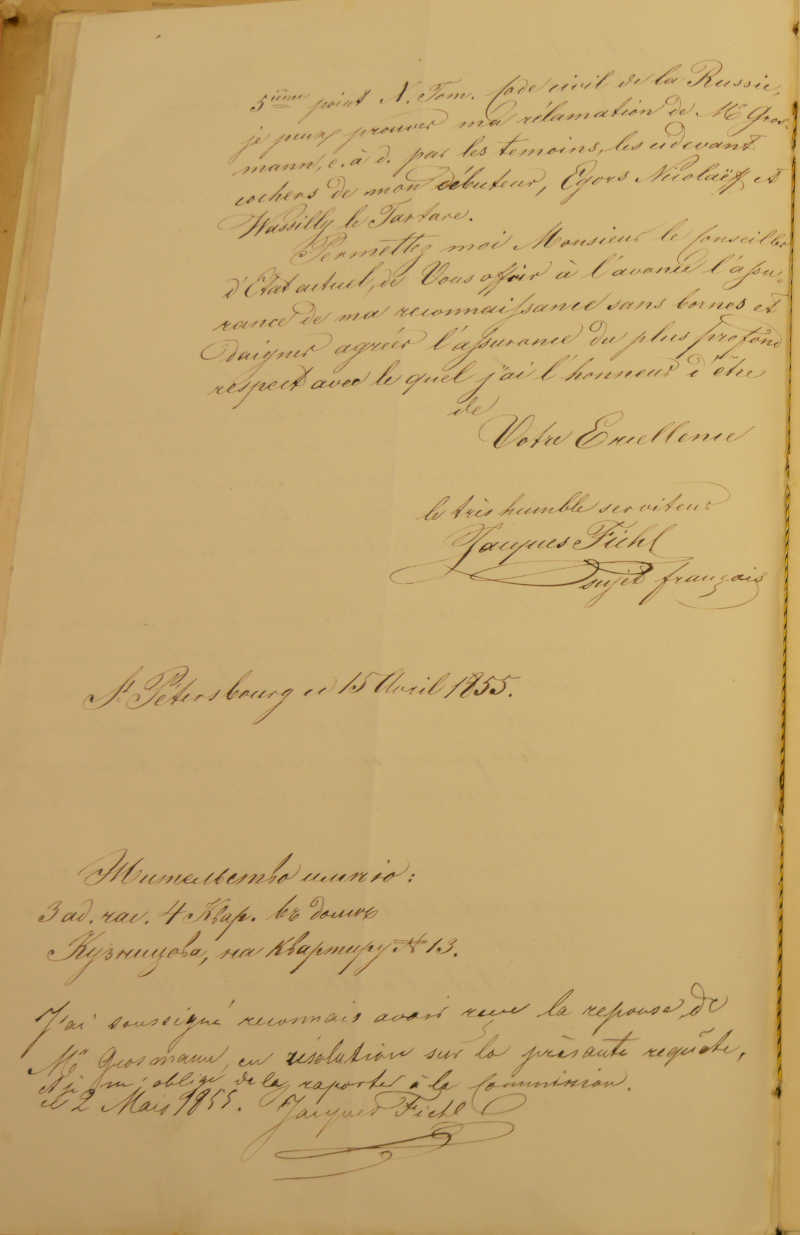 5ième point X. Tom. Code civil de la Russie,
je peux prouver ma réclamation de Mr Gros-
mann, c. à d. par les temoins, les cidevant
cochers de mon débuteur, Egors Nicolaïff et
Wassilly le Tartare.
Permettez moi Monsieur le Conseiller
d'Etat actuel, de Vous offrir à l'avance l'assu-
rance de ma reconnaissance sans bornes et
daigner agréer l'assurance du plus profond
respect avec le quel j'ai l'honneur d'être
de
Votre Excellence
le très humble serviteur
Jacques Fiehl
sujet français
St Pétersbourg ce 15 Avril 1855.
Жительство имѣю:
3 ад. час. 4 Квар. въ домѣ
Кузницова, на квартиру № 13.
J'ai soussigné reconnais avoir reçue la reponse de
Mr Grosmann, en résolution sur la présante requête,
et je m'oblige de la raporter à la Commission.
ce 2 Mais 1855. Jacques Fiehl